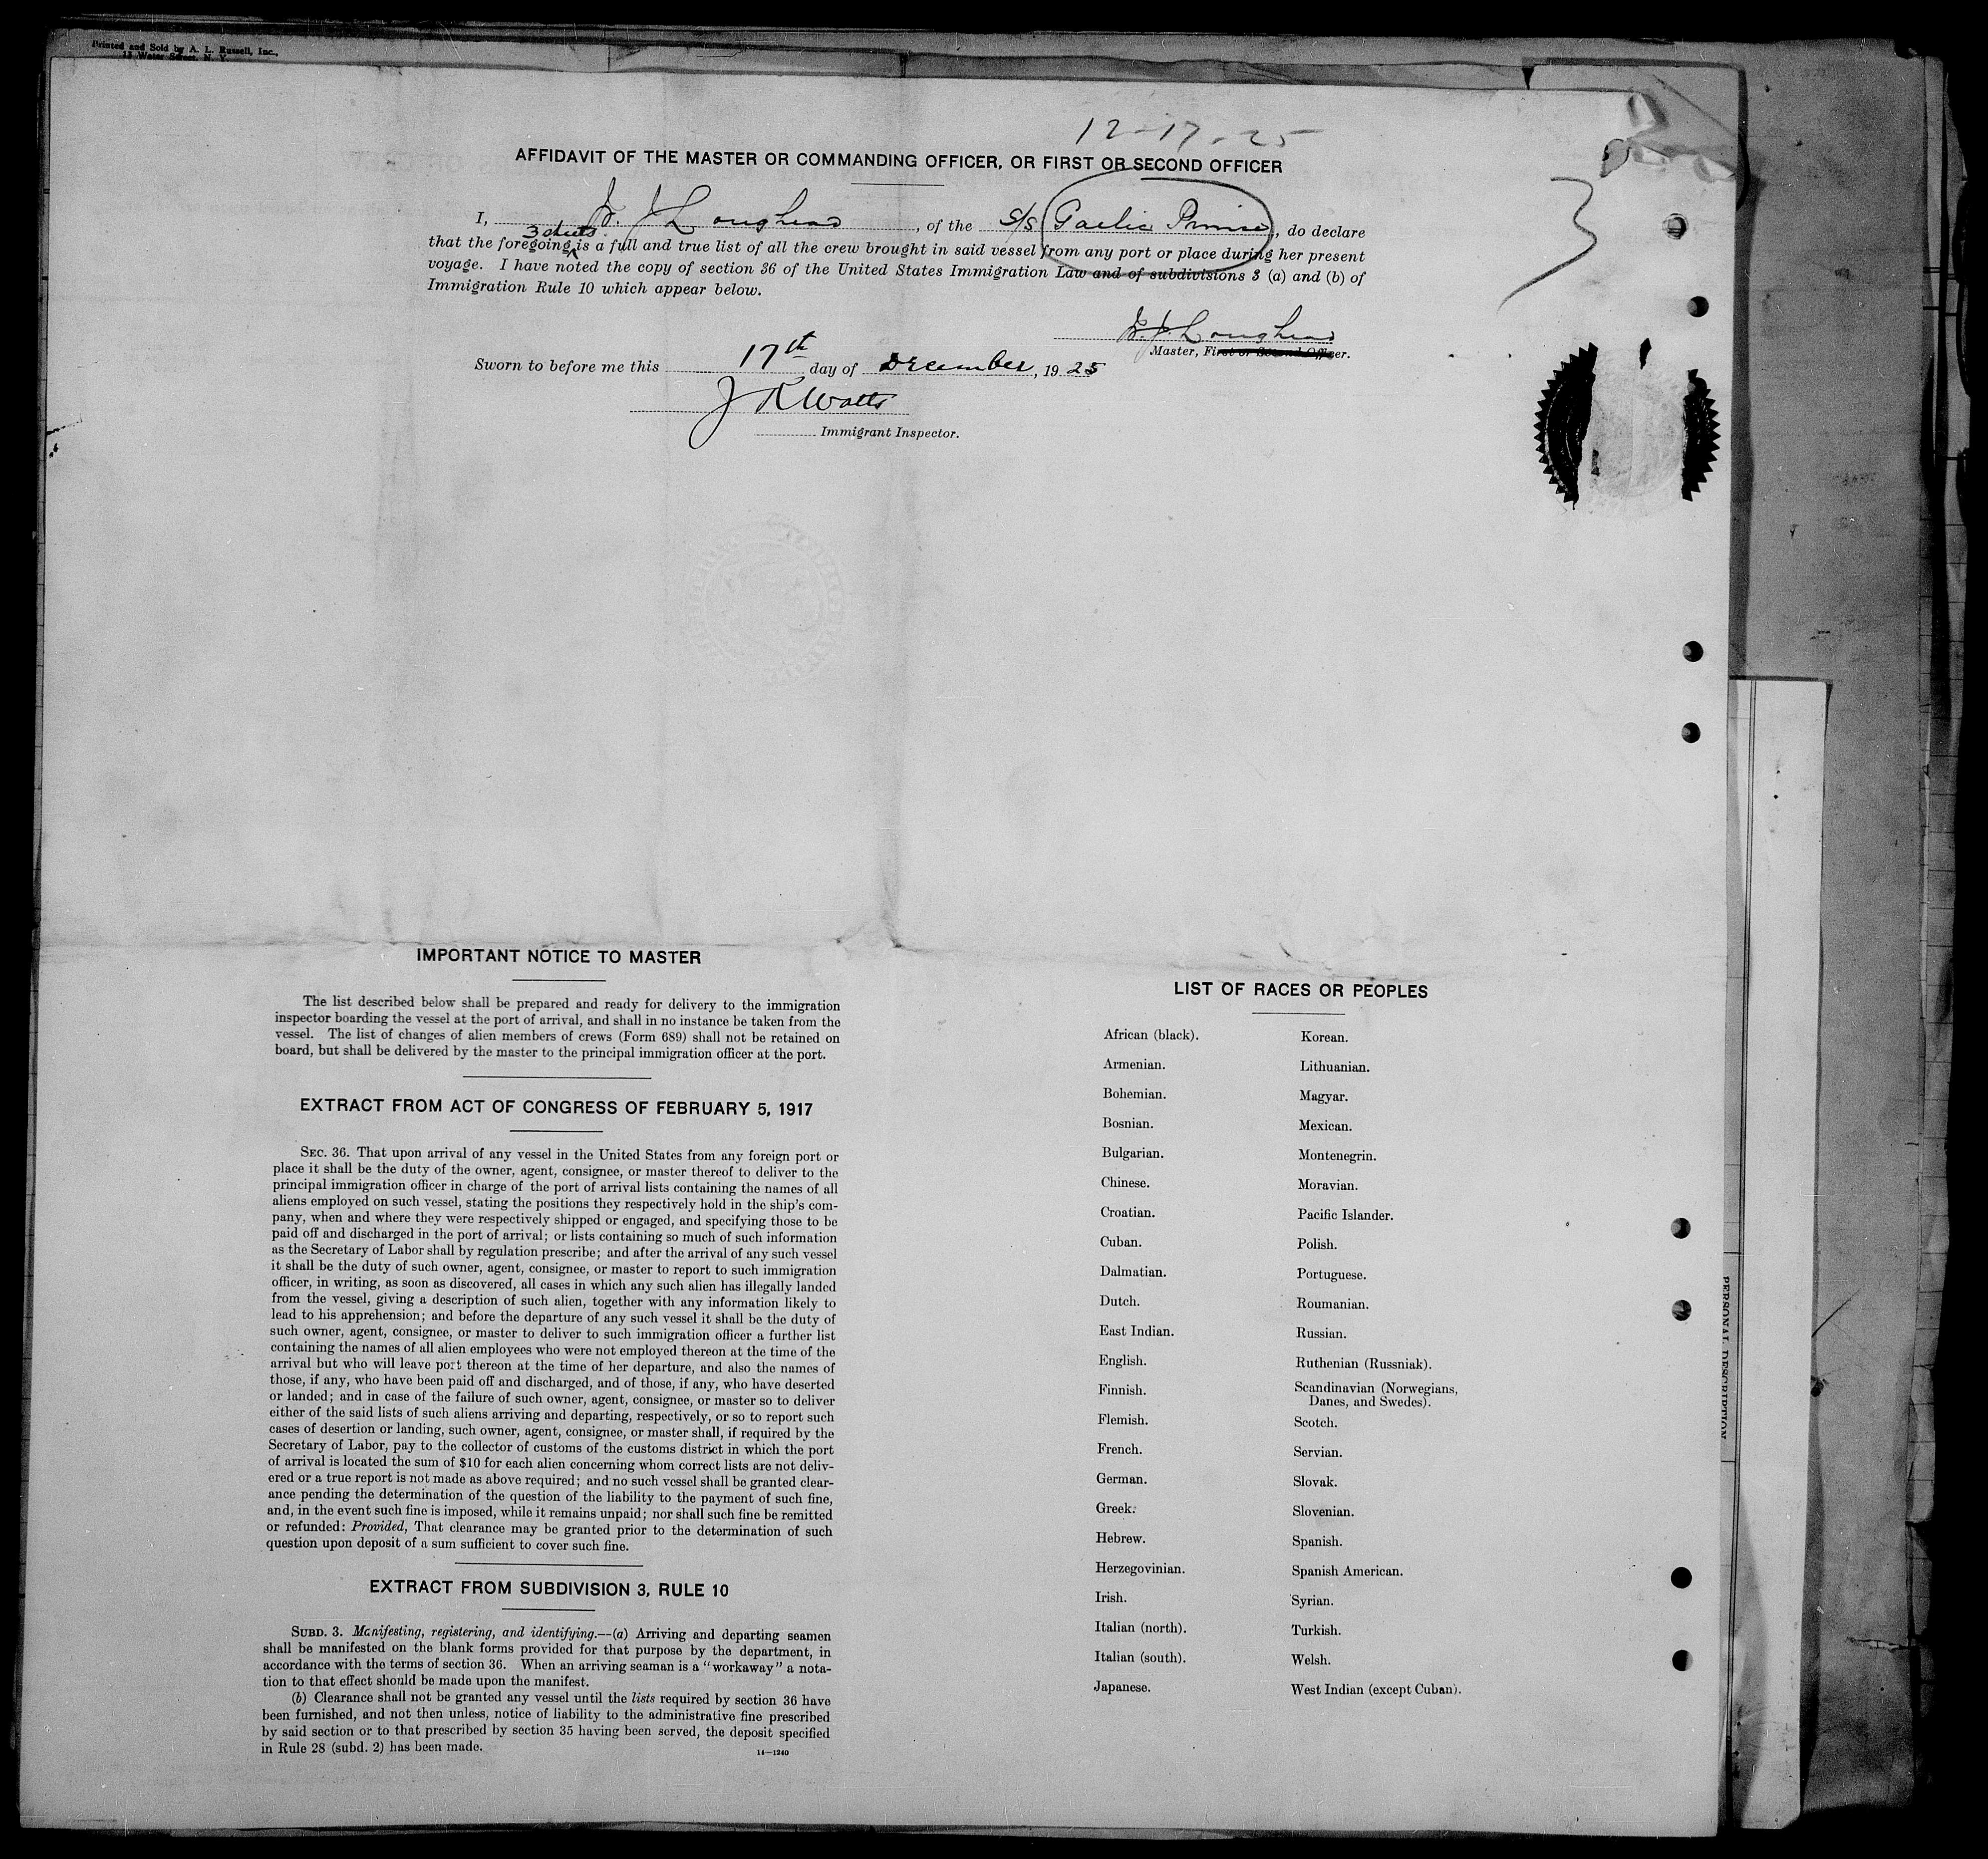 Printed and Sold by A. L. Russell, Inc.,
13 Water Street, N. Y.
12-17-25
AFFIDAVIT OF THE MASTER OR COMMANDING OFFICER, OR FIRST OR SECOND OFFICER
I, J. Loughead, of the S/S Gaelic Prince, do declare
3 sheets
that the foregoing is a full and true list of all the crew brought in said vessel from any port or place during her present
voyage. I have noted the copy of section 36 of the United States Immigration Law and of subdivisions 3 (a) and (b) of
Immigration Rule 10 which appear below.
3
J. Loughead
Master, First or Second Officer.
Sworn to before me this 17th day of December, 1925
J R Watts
Immigrant Inspector.
IMPORTANT NOTICE TO MASTER
The list described below shall be prepared and ready for delivery to the immigration
inspector boarding the vessel at the port of arrival, and shall in no instance be taken from the
vessel. The list of changes of alien members of crews (Form 689) shall not be retained on
board, but shall be delivered by the master to the principal immigration officer at the port.
EXTRACT FROM ACT OF CONGRESS OF FEBRUARY 5, 1917
SEC. 36. That upon arrival of any vessel in the United States from any foreign port or
place it shall be the duty of the owner, agent, consignee, or master thereof to deliver to the
principal immigration officer in charge of the port of arrival lists containing the names of all
aliens employed on such vessel, stating the positions they respectively hold in the ship's com-
pany, when and where they were respectively shipped or engaged, and specifying those to be
paid off and discharged in the port of arrival; or lists containing so much of such information
as the Secretary of Labor shall by regulation prescribe; and after the arrival of any such vessel
it shall be the duty of such owner, agent, consignee, or master to report to such immigration
officer, in writing, as soon as discovered, all cases in which any such alien has illegally landed
from the vessel, giving a description of such alien, together with any information likely to
lead to his apprehension; and before the departure of any such vessel it shall be the duty of
such owner, agent, consignee, or master to deliver to such immigration officer a further list
containing the names of all alien employees who were not employed thereon at the time of the
arrival but who will leave port thereon at the time of her departure, and also the names of
those, if any, who have been paid off and discharged, and of those, if any, who have deserted
or landed; and in case of the failure of such owner, agent, consignee, or master so to deliver
either of the said lists of such aliens arriving and departing, respectively, or so to report such
cases of desertion or landing, such owner, agent, consignee, or master shall, if required by the
Secretary of Labor, pay to the collector of customs of the customs district in which the port
of arrival is located the sum of $10 for each alien concerning whom correct lists are not deliv-
ered or a true report is not made as above required; and no such vessel shall be granted clear-
ance pending the determination of the question of the liability to the payment of such fine,
and, in the event such fine is imposed, while it remains unpaid; nor shall such fine be remitted
or refunded: Provided, That clearance may be granted prior to the determination of such
question upon deposit of a sum sufficient to cover such fine.
EXTRACT FROM SUBDIVISION 3, RULE 10
SUBD. 3. Manifesting, registering, and identifying.—(a) Arriving and departing seamen
shall be manifested on the blank forms provided for that purpose by the department, in
accordance with the terms of section 36. When an arriving seaman is a "workaway" a nota-
tion to that effect should be made upon the manifest.
(b) Clearance shall not be granted any vessel until the lists required by section 36 have
been furnished, and not then unless, notice of liability to the administrative fine prescribed
by said section or to that prescribed by section 35 having been served, the deposit specified
in Rule 28 (subd. 2) has been made.
14—1240
LIST OF RACES OR PEOPLES
African (black).
Armenian.
Bohemian.
Bosnian.
Bulgarian.
Chinese.
Croatian.
Cuban.
Dalmatian.
Dutch.
East Indian.
English.
Finnish.
Flemish.
French.
German.
Greek.
Hebrew.
Herzegovinian.
Irish.
Italian (north).
Italian (south).
Japanese.
Korean.
Lithuanian.
Magyar.
Mexican.
Montenegrin.
Moravian.
Pacific Islander.
Polish.
Portuguese.
Roumanian.
Russian.
Ruthenian (Russniak).
Scandinavian (Norwegians,
Danes, and Swedes).
Scotch.
Servian.
Slovak.
Slovenian.
Spanish.
Spanish American.
Syrian.
Turkish.
Welsh.
West Indian (except Cuban).
PERSONAL DESCRIPTION